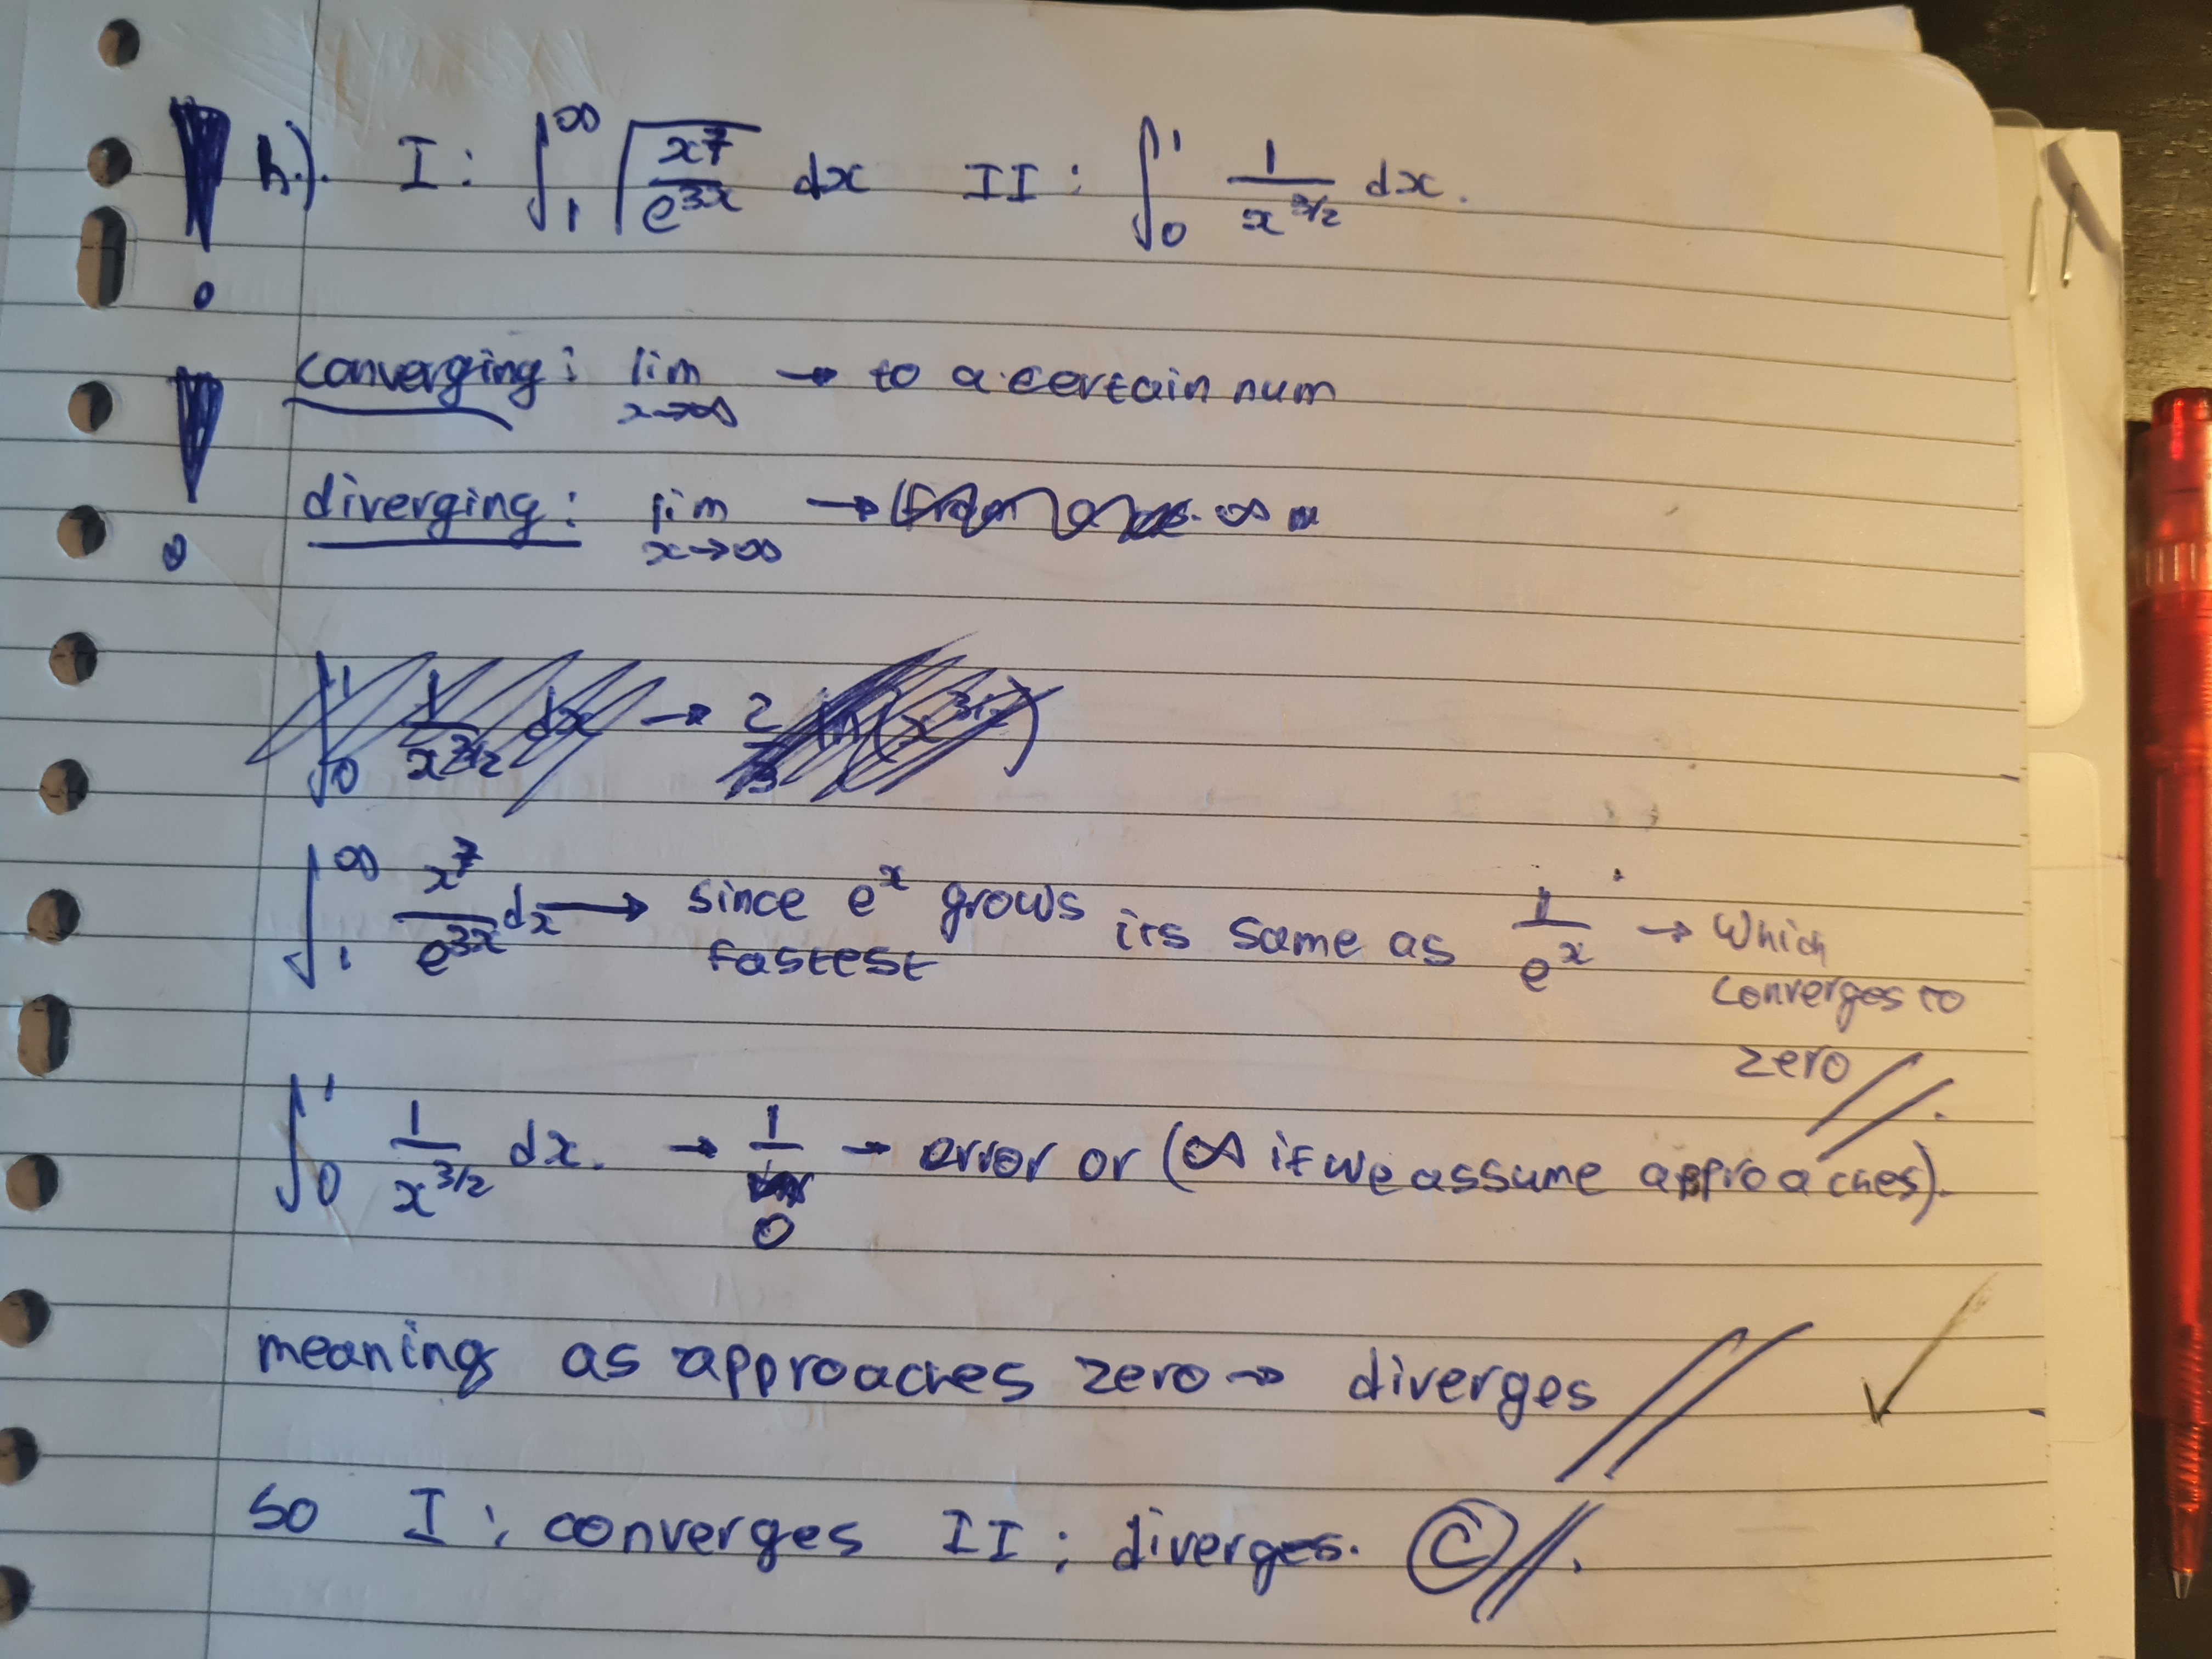 h.). I: ∫₁^∞ √(x⁷/e^{3x}) dx II: ∫₀¹ 1/x^{3/2} dx.
converging: lim x→∞ → to a certain num
diverging: lim x→∞ → ∞
∫₀¹ 1/x^{3/2} dx → 2/3 ln(x^{3/2})
∫₁^∞ x⁷/e^{3x} dx → since e^x grows fastest its same as 1/e^x → which converges to zero
∫₀¹ 1/x^{3/2} dx. → 1/0 → error or (∞ if we assume approaches).
meaning as approaches zero → diverges
so I: converges II: diverges. C